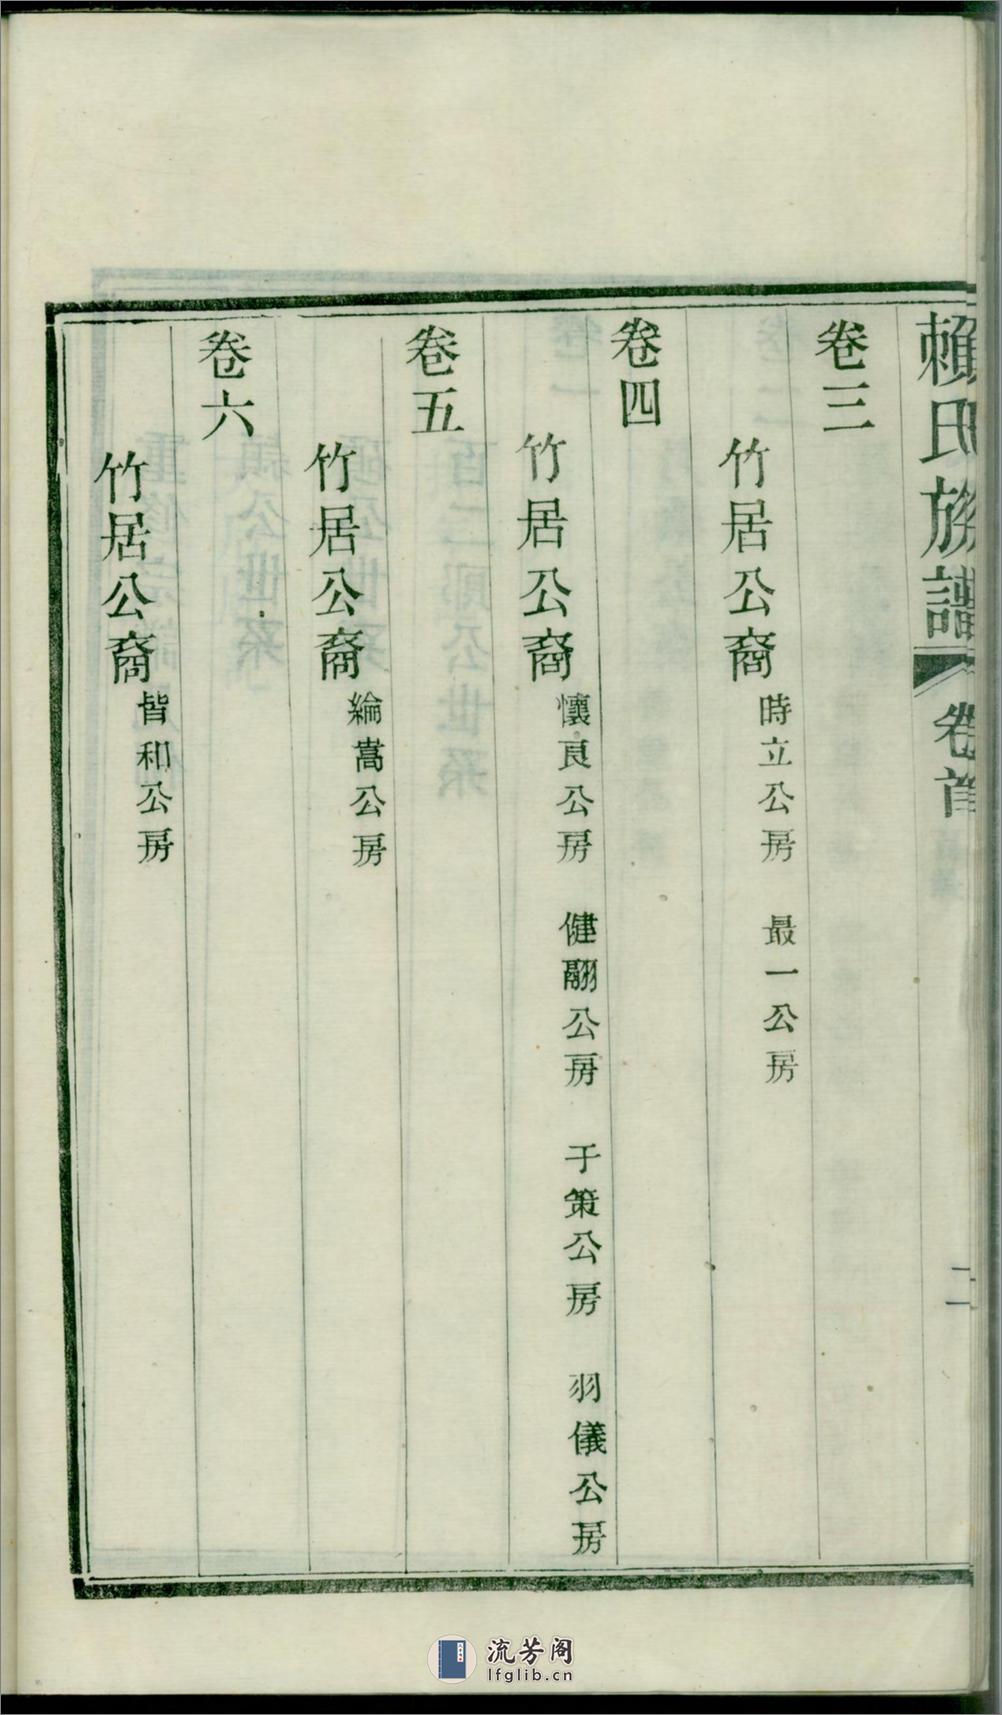 賴氏族譜 卷首 二
卷三
竹居公裔 時立公房 最一公房
卷四
竹居公裔 懷良公房 健翮公房 于策公房 羽儀公房
卷五
竹居公裔 綸嵩公房
卷六
竹居公裔 皆和公房
流芳阁
lfglib.cn